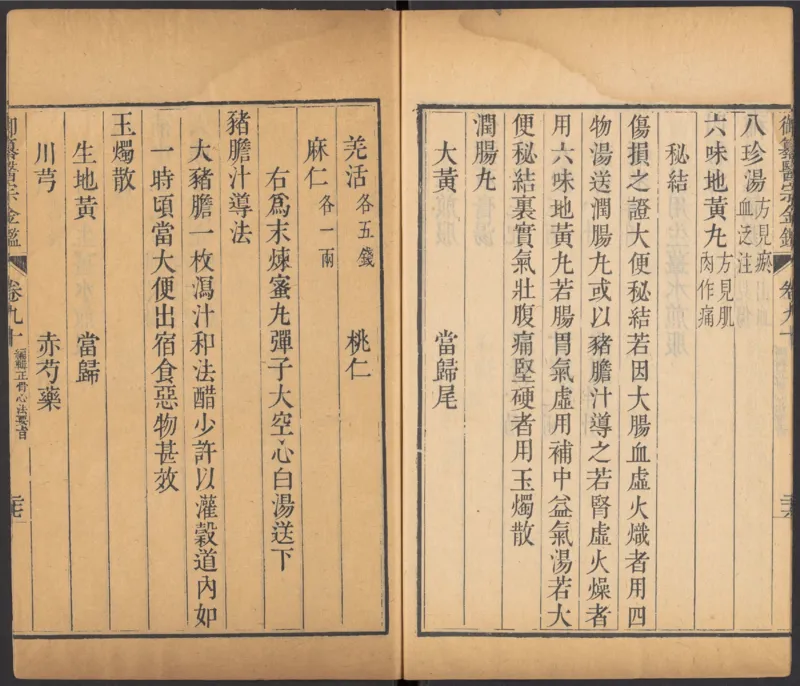 御纂醫宗金鑑 卷九十
八珍湯 方見瘀血泛注
六味地黃丸 方見肌肉作痛
秘結
傷損之證大便秘結若因大腸血虛火熾者用四
物湯送潤腸丸或以豬膽汁導之若腎虛火燥者
用六味地黃丸若腸胃氣虛用補中益氣湯若大
便秘結裏實氣壯腹痛堅硬者用玉燭散
潤腸丸
大黃 當歸尾
羌活各五錢 桃仁
麻仁各一兩
右爲末煉蜜丸彈子大空心白湯送下
豬膽汁導法
大豬膽一枚瀉汁和法醋少許以灌穀道內如
一時頃當大便出宿食惡物甚效
玉燭散
生地黃 當歸
川芎 赤芍藥
御纂醫宗金鑑 卷九十 編輯正骨心法要旨